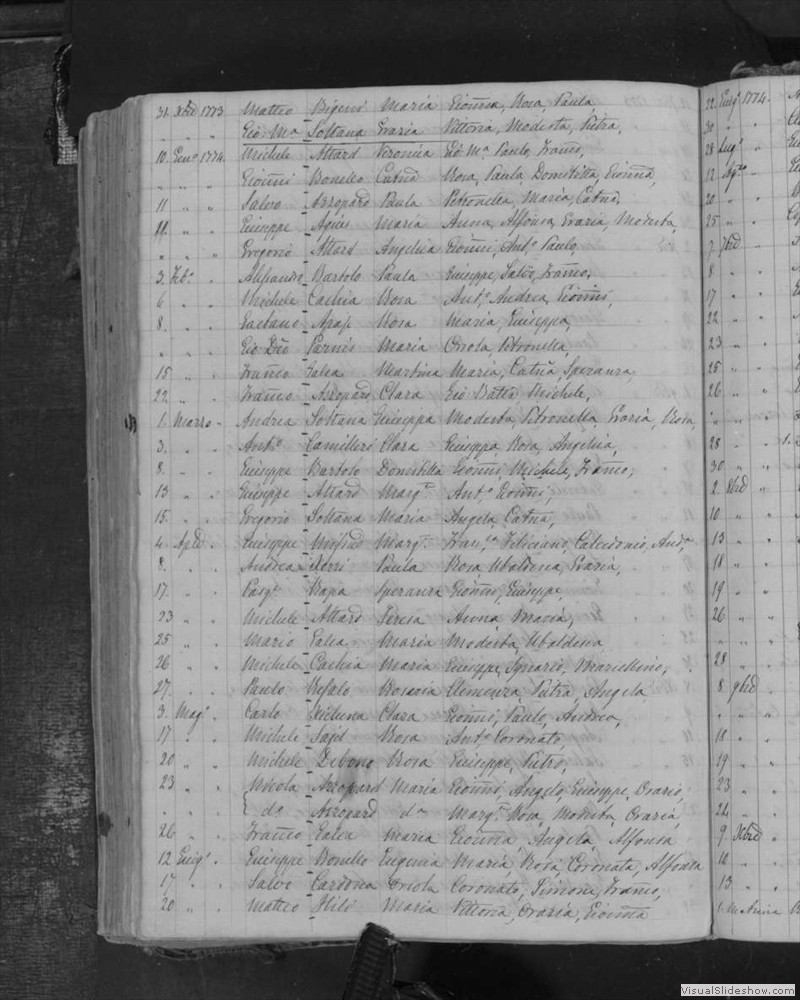 31. Xbre 1773 Matteo Bigeni Maria Gioa̅nna, Rosa, Paula,
" " " Gio Ma Soltana Grazia Vittoria, Modesta, Pietra,
10. Genº 1774. Michele Attard Veronica Gio Ma Paulo, Franco̅,
" " " Gioanni Bonello Catna̅ Rosa, Paula, Domitilla, Gioanna,
11 " " Salvo Azzopard Paula Petronella, Maria, Catna̅,
11. " " Giuseppe Agius Maria Anna, Alfonsa, Grazia, Modesta,
" " " Gregorio Attard Angelica Gioanni, Antº, Paulo,
3. Febº " Alessandro Bartolo Paula Giuseppe, Salvo, Franco̅,
6 " " Michele Cachia Rosa Antº, Andrea, Gioanni,
8. " " Gaetano Apap Rosa Maria, Giuseppa,
" " " Gio Dn̅o Parnis Maria Orsola, Petronella,
15 " " Franco̅ Galea Martina Maria, Catna̅, Speranza,
22. " " Franco̅ Azzopard Clara Gio Batta Michele,
1. Marzo " Andrea Soltana Giuseppa Modesta, Petronella, Grazia, Rosa,
3. " " Antº Camilleri Clara Giuseppa, Rosa, Angelica,
8. " " Giuseppe Bartolo Domitilla Gioanni, Michele, Franco̅,
13 " " Giuseppe Attard Margta Antº Gioanni,
15. " " Gregorio Soltana Maria Angela, Catna̅,
4. Aple " Giuseppe Mifsud Margta Franca Feliciano, Calcedonio, Anda
8. " " Andrea Paula Rosa Ubaldesca, Grazia,
17. " " Pasqe Rapa Speranza Gioanni, Giuseppe,
23 " " Michele Attard Teresa Anna, Maria,
25 " " Mario Galea Maria Modesta, Ubaldesca
26 " " Michele Cachia Maria Giuseppe, Ignazio, Marcellino,
27. " " Paulo Refalo Rosaria Clemenza, Pietra, Angela
3. Magº " Carlo Xicluna Clara Gioanni, Paulo, Andrea,
17 " " Michele Said Rosa Antº Coronato,
20 " " Michele Debono Rosa Giuseppe, Pietro,
23 " " Nicola Azzopard Maria Gioanni, Angelo, Giuseppe, Orazio,
" " " { dº Azzopard dº Margta Rosa, Modesta, Orazia,
26 " " Franco̅ Galea Maria Gioanna, Angela, Alfonsa
12 Giugº " Giuseppe Bonello Eugenia Maria, Rosa, Coronata, Alfonsa
17 " " Salvo Cardona Orsola Coronato, Simone, Franco̅,
20 " " Matteo Hili Maria Vittoria, Orazia, Gioanna
22. Giugº 1774.
30 " "
28 Lugº "
12 Agto "
20 " "
25 " "
7 7bre "
8 " "
17 " "
22 " "
23 " "
25 " "
26 " "
" " "
28 " "
30 " "
2. 8bre "
10 " "
13 " "
18 " "
19 " "
26 " "
" " "
28 " "
8 9bre "
" " "
18 " "
19 " "
23 " "
24 " "
9 Xbre "
10 " "
13 " "
VisualSlideshow.com